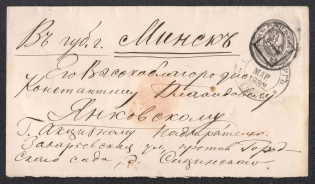 Въ губ. г. Минскъ
Его Высокоблагородію
Константину
Янковскому
Г. Акцизному Надзирателю
Захарьевская ул. противъ Город
скаго сада, д.
МАР